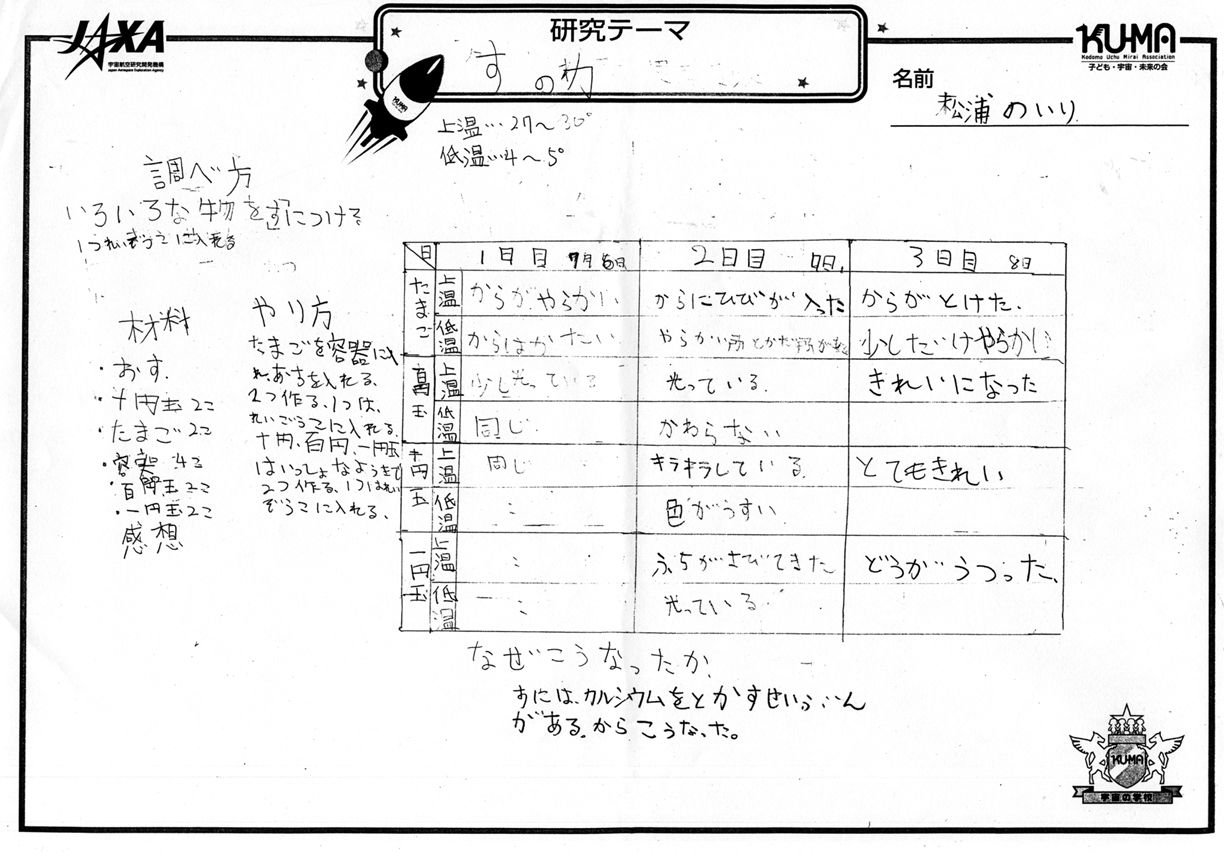 JAXA
宇宙航空研究開発機構
Japan Aerospace Exploration Agency
研究テーマ
すの力
KUMA
KU-MA
Kodomo Uchu Mirai Association
子ども・宇宙・未来の会
名前
松浦のいり
上温…27~30°
低温…4~5°
調べ方
いろいろな物をすにつける
1つれいぞうこに入れる
材料
・おす
・十円玉2こ
・たまご2こ
・容器4こ
・百円玉2こ
・一円玉2こ
感想
やり方
たまごを容器に入
れ、おすを入れる、
2つ作る、1つは、
れいぞうこに入れる、
十円、百円、一円玉
はいっしょなようきで
2つ作る、1つはれい
ぞうこに入れる、
日 1日目 7月6日 2日目 7日、 3日目 8日
たまご 上温 からがやらかい からにひびが入った からがとけた、
低温 からはかたい やらかい所とかたい所が 少しだけやらかい
百円玉 上温 少し光っている 光っている、 きれいになった
低温 同じ、 かわらない
十円玉 上温 同じ キラキラしている、 とてもきれい
低温 〃 色がうすい
一円玉 上温 〃 ふちがさびてきた どうがうつった、
低温 〃 光っている
なぜこうなったか、
すには、カルシウムをとかすせいぶん
がある、からこうなった。
KUMA
宇宙の学校